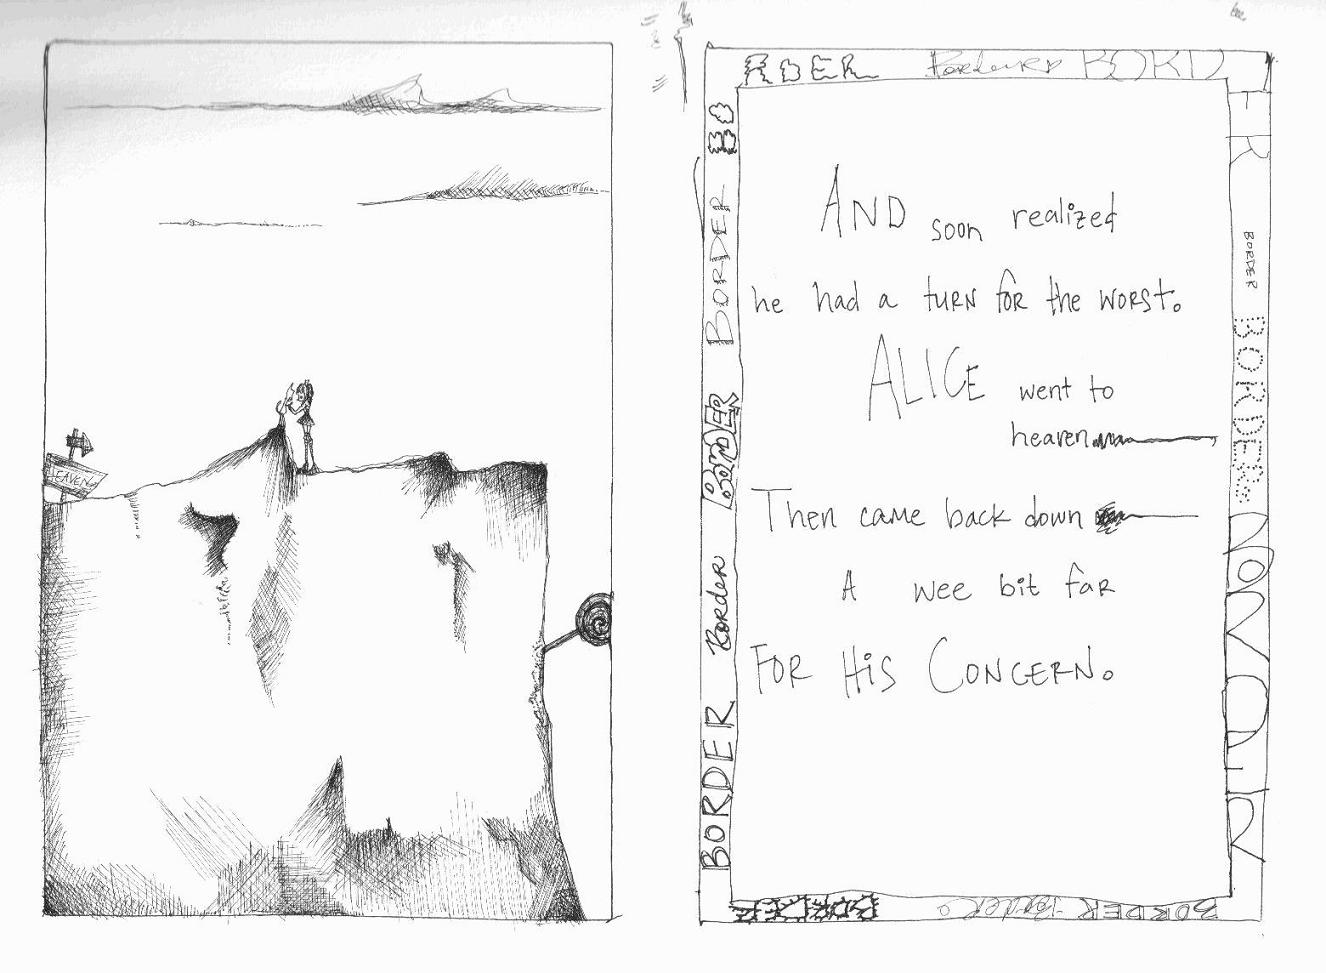 EAVEN
RDER Border BORD
ER
BORDER
BORDER
BORDER
BORDER BORDER Border BORDER BORDER BO
AND soon realized
he had a turn for the worst.
ALICE went to
heaven
Then came back down
A wee bit far
FOR HiS CONCERN.
BORDER Border BORDER